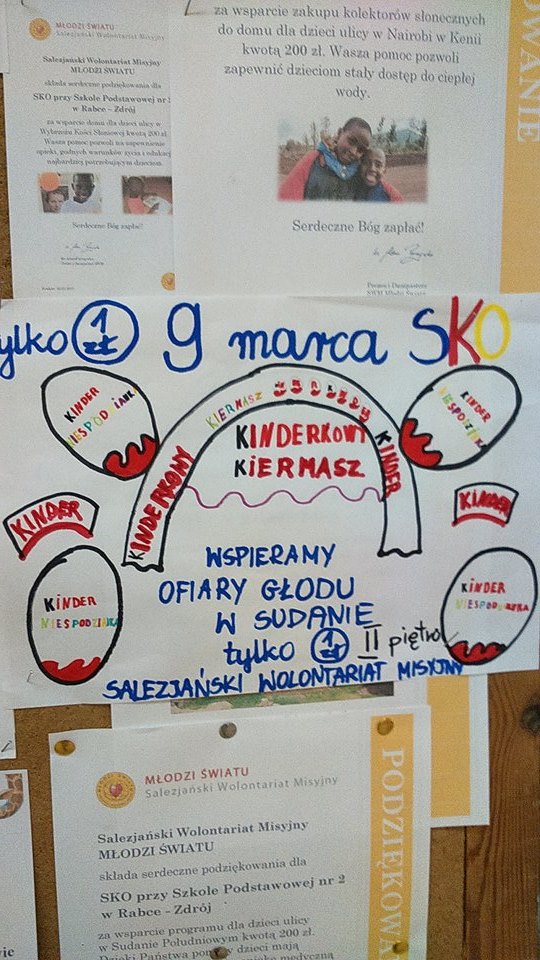 MŁODZI ŚWIATU
Salezjański Wolontariat Misyjny
Salezjański Wolontariat Misyjny
MŁODZI ŚWIATU
składa serdeczne podziękowania dla
SKO przy Szkole Podstawowej nr 2
w Rabce - Zdrój
za wsparcie domu dla dzieci ulicy w
Wybrzeżu Kości Słoniowej kwotą 200 zł.
Wasza pomoc pozwoli na zapewnienie
opieki, godnych warunków życia i edukacji
najbardziej potrzebującym dzieciom.
Serdeczne Bóg zapłać!
za wsparcie zakupu kolektorów słonecznych
do domu dla dzieci ulicy w Nairobi w Kenii
kwotą 200 zł. Wasza pomoc pozwoli
zapewnić dzieciom stały dostęp do ciepłej
wody.
Serdeczne Bóg zapłać!
OWANIE
tylko 1 zł 9 marca SKO
KINDER
NIESPODZIANKA
KINDERKOWY KIERMASZ KINDER
KINDERKOWY
KIERMASZ
KINDER
NIESPODZIANKA
KINDER
KINDER
KINDER
NIESPODZIANKA
KINDER
NIESPODZIANKA
WSPIERAMY
OFIARY GŁODU
W SUDANIE
tylko 1 zł II piętro
SALEZJAŃSKI WOLONTARIAT MISYJNY
MŁODZI ŚWIATU
Salezjański Wolontariat Misyjny
Salezjański Wolontariat Misyjny
MŁODZI ŚWIATU
składa serdeczne podziękowania dla
SKO przy Szkole Podstawowej nr 2
w Rabce - Zdrój
za wsparcie programu dla dzieci ulicy
w Sudanie Południowym kwotą 200 zł.
Dzięki Państwa pomocy dzieci mają
medyczną
PODZIĘKOWA